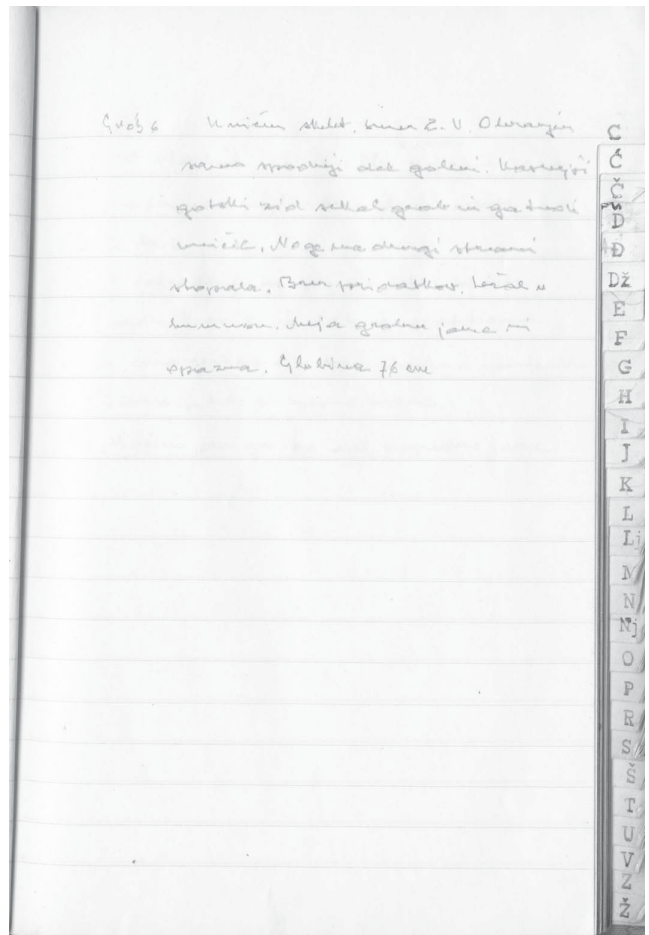 Grob 6 Uničen skelet, smer Z. V. Ohranjen
samo spodnji del goleni. Kasnejši
gotski zid sekal grob in ga tudi
uničil. Noge na drugi strani
. Brez pridatkov. Ležal v
humusu. Meja grobne jame ni
opazna. Globina 76 cm
C
Ć
Č
D
Đ
Dž
E
F
G
H
I
J
K
L
Lj
M
N
Nj
O
P
R
S
Š
T
U
V
Z
Ž